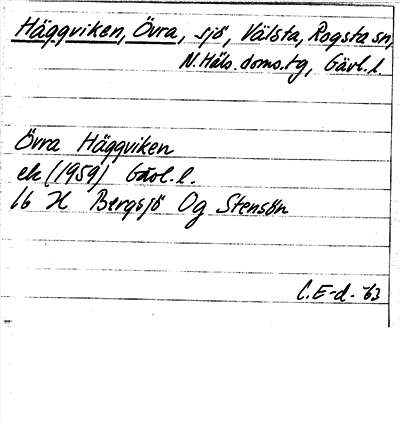 Häggviken, Övra, sjö, Välsta, Rogsta sn,
N. Häls. doms.tg, Gävl. l.
Övra Häggviken
ek (1959) Gävl. l.
16 H Bergsjö Og Stensön
C. E-d. -63